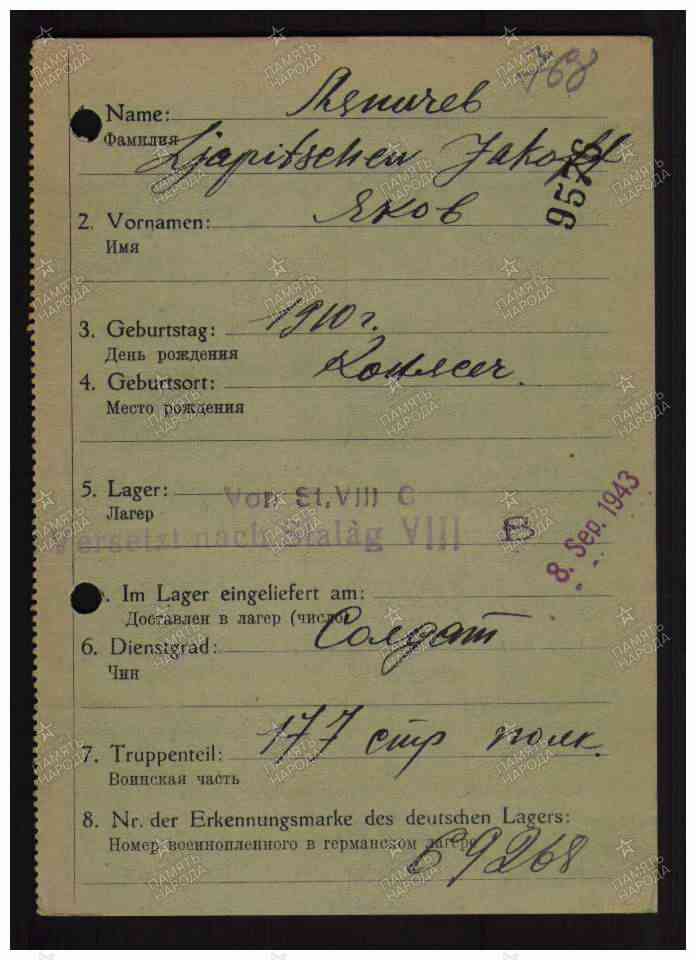 768
Ляпичев
1. Name:
Фамилия
Ljapitschew Jakoff
9576
2. Vornamen: Яков
Имя
3. Geburtstag: 1910 г.
День рождения
4. Geburtsort:
Место рождения
5. Lager: Von St, VIII C
Лагер
Versetzt nach Stalag VIII B
8. Sep. 1943
Im Lager eingeliefert am:
Доставлен в лагер (число)
6. Dienstgrad: Солдат
Чин
7. Truppenteil: 177 стр полк.
Воинская часть
8. Nr. der Erkennungsmarke des deutschen Lagers:
Номер военнопленного в германском лагере
69268
ПАМЯТЬ НАРОДА